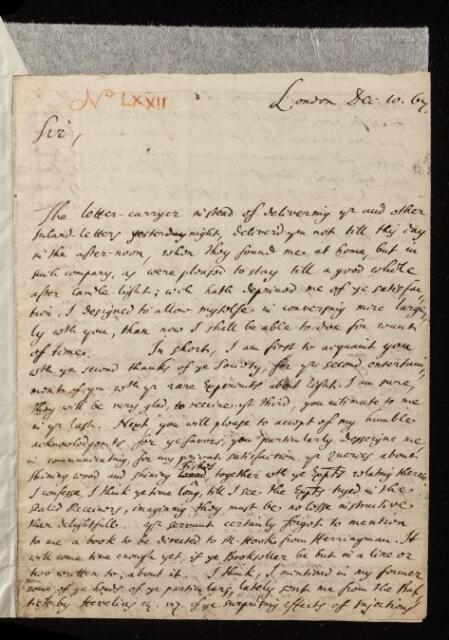 No LXXII
London Dec. 10. 67
Sir,
The letter-carryer instead of delivering yr and other
Inland-letters yesterday night, deliverd ym not till this day
in the after-noon, when they found me at home, but in
such company, as were pleased to stay till a good while
after candle-light; wch hath deprived me of ye satisfac-
tion, I designed to allow myselfe in conversing more large-
ly with you, than now I shall be able to doe for want
of time. In short, I am first to acquaint you
wth ye second thanks of ye Society, for yr second entertain-
ment of ym wth yr rare Experiments about Light. I am sure,
they will be very glad, to receive yt third, you intimate to me
in yr last. Next, you will please to accept of my humble
acknowledgmts for ye favors, you particularly oblige me
in communicating, for my private satisfaction, yr Queries about
shining wood and shining Fishes together wth ye Expts relating thereto.
I confesse, I think ye time long, till I see the Expts tryed in the
Exhausted Receivers, imagining they must be no lesse instructive
then delightfull. yr servant certainly forgot to mention
to me a book to be directed to Mr Hook from Herringman. It
will come time enough yet, if ye Bookseller be but in a line or
two written to, about it. I think, I mentioned in my former
some of ye heads of ye particulars, lately sent me from the
by Hevelius &c. viz. of ye surprising effects of Injections